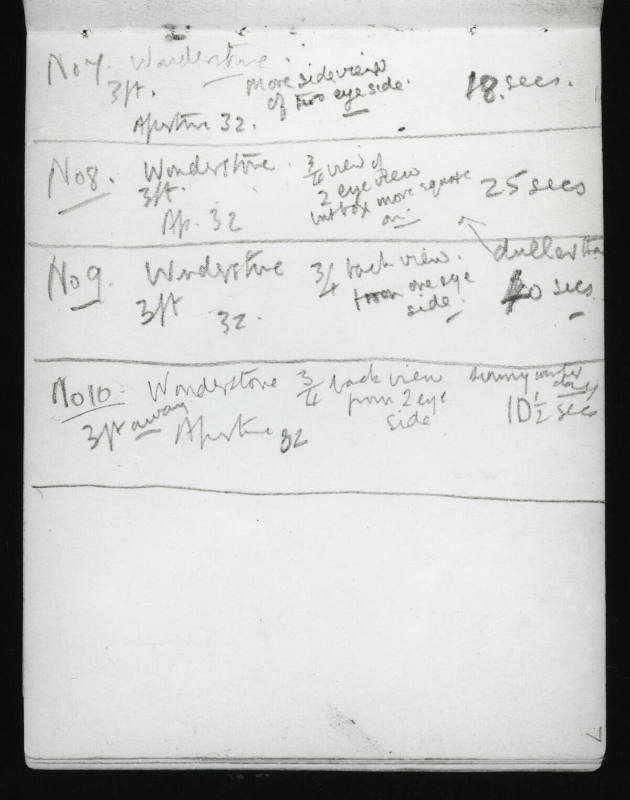 No 7. Wonderstone.
3ft.
More side view
of two eye side.
18 secs.
Aperture 32.
No 8. Wonderstone.
3ft.
Ap. 32
3/4 view of
2 eye view
but box more square
on.
25 secs
duller than
No 9 Wonderstone
3ft
32.
3/4 back view.
from one eye
side.
secs.
No 10 Wonderstone
3ft away
Aperture 32
3/4 back view
from 2 eye
side
sunny
day
10 1/2 secs